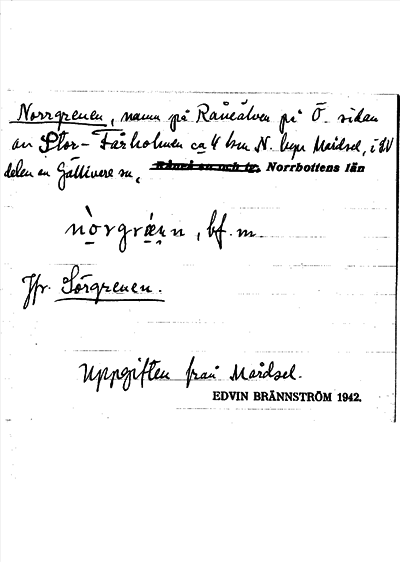 Norrgrenen, namn på Råneälven på Ö. sidan
av Stor-Fårholmen ca 4 km N. byn Mårdsel, i SV
delen av Gällivare sn, Norrbottens län
nòrgræn, bf. m.
Jfr. Sörgrenen.
Uppgiften från Mårdsel.
EDVIN BRÄNNSTRÖM 1942.